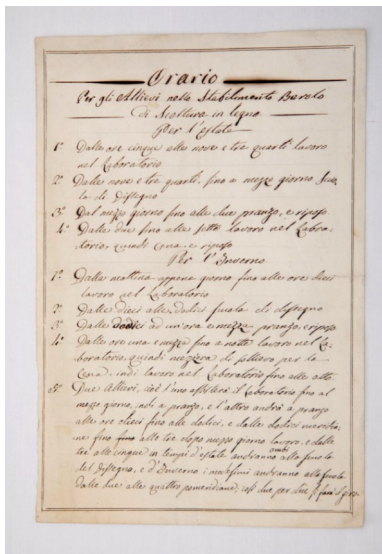 Orario
Per gli Allievi nello Stabilimento Barola
di Scoltura in legno
Per l'Estate
1.º Dalle ore cinque alle nove e tre quarti lavoro
nel Laboratorio
2.º Dalle nove e tre quarti, fino a mezzo giorno Scuo-
la di Disegno
3.º Dal mezzo giorno fino alle due pranzo, e riposo
4.º Dalle due fino alle sette lavoro nel Labra-
torio, quindi Cena, e riposo
Per l'Inverno
1.º Dalla mattina appena giorno fino alle ore dieci
lavoro nel Laboratorio
2.º Dalle dieci alle dodici scuola di disegno
3.º Dalle dodici ad un'ora e mezza pranzo, e riposo
4.º Dalle ore una e mezza fino a notte lavoro nel La-
boratorio, quindi mezz'ora di sollievo per la
Cena, indi lavoro nel Laboratorio fino alle otto.
5.º Due Allievi, cioè l'uno assisterà il Laboratorio fino al
mezzo giorno, indi a pranzo, e l'altro andrà a pranzo
alle ore dieci fino alle dodici, e dalle dodici meridia-
ne fino alle tre dopo mezzo giorno lavoro, e dalle
tre alle cinque in tempi d'estate andranno ambi alla scuola
del Disegno, e d'Inverno i medesimi andranno alla scuola
dalle due alle quattro pomeridiane, così due per due si farà il giro.